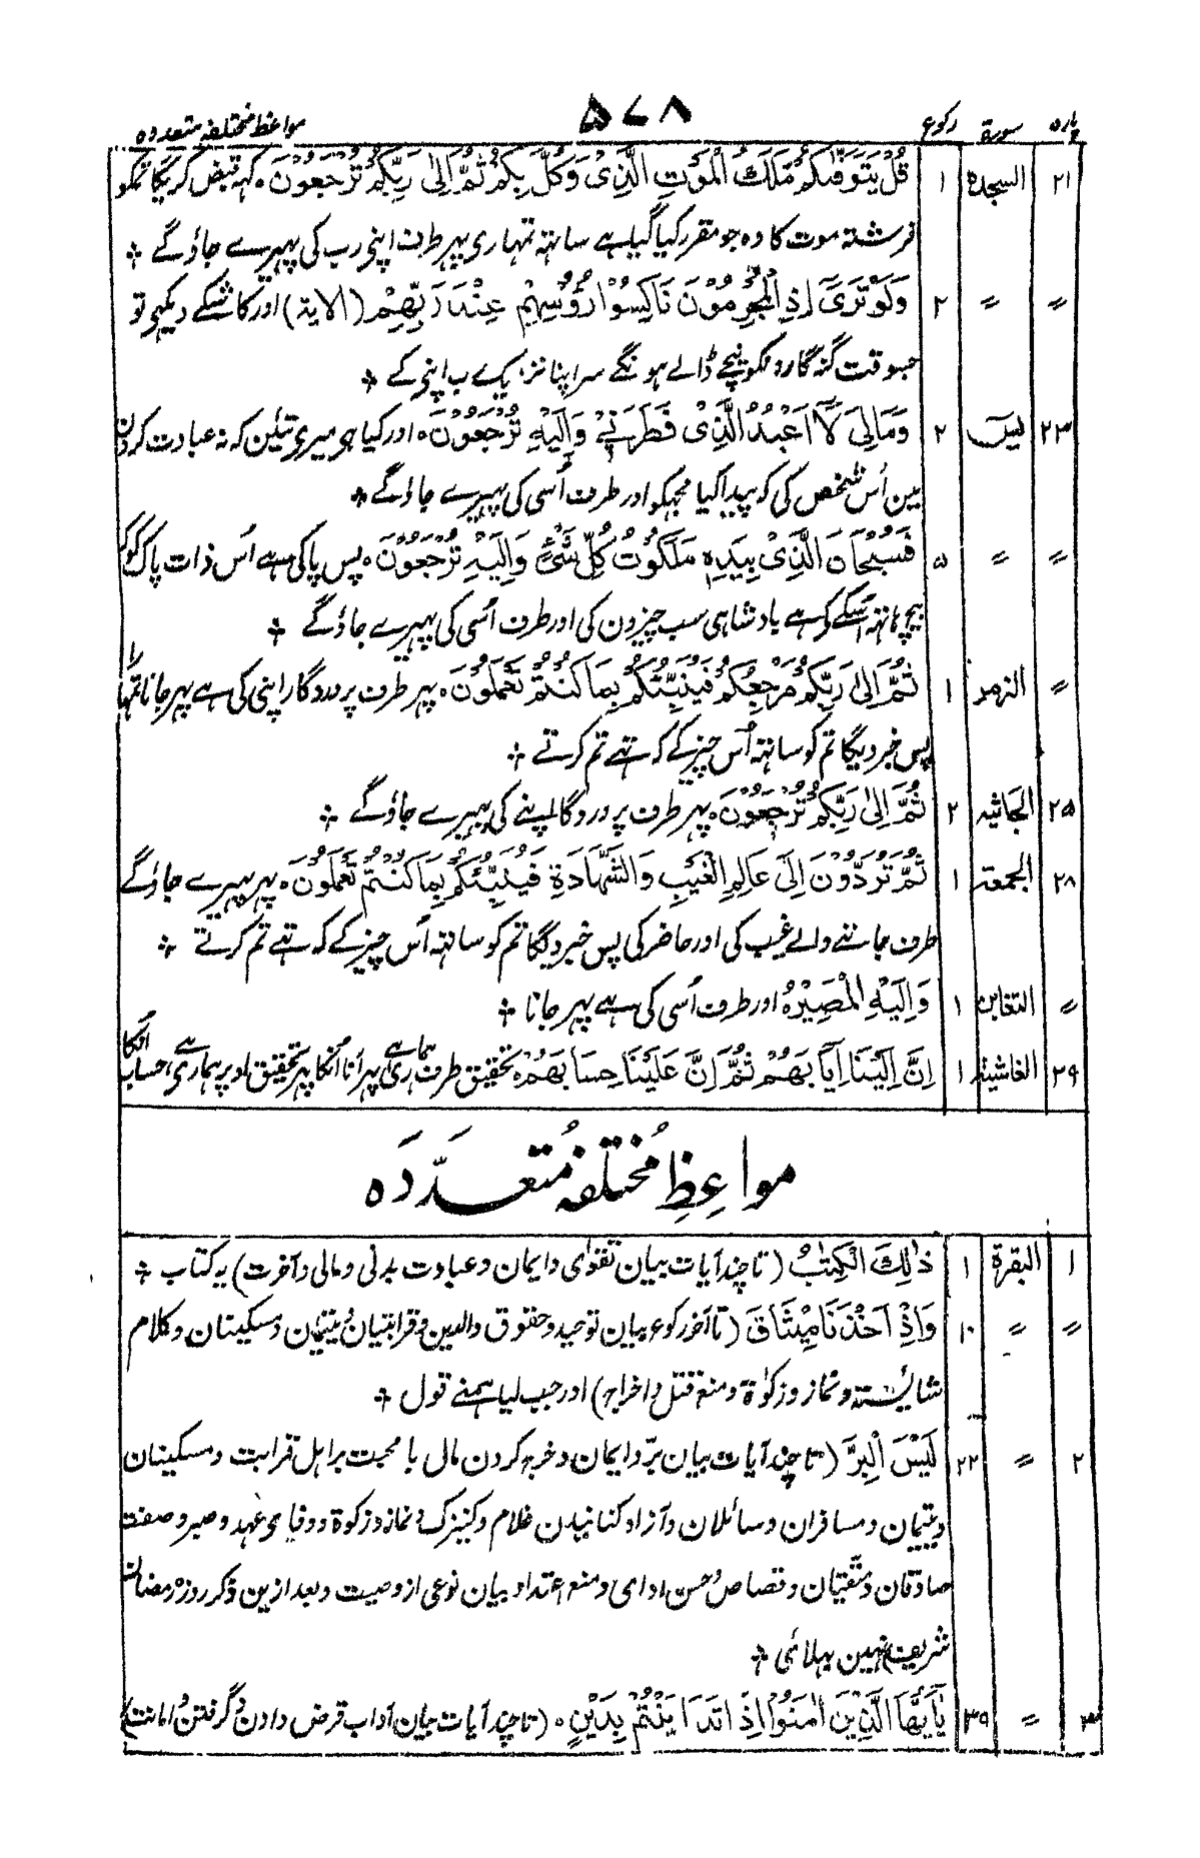 پارہ سورة رکوع ۵۷۸ مواعظ مختلفہ متعددہ
۲۱ السجدة ۱ قُلْ يَتَوَفّٰىكُمْ مَّلَكُ الْمَوْتِ الَّذِىْ وُكِّلَ بِكُمْ ثُمَّ اِلٰى رَبِّكُمْ تُرْجَعُوْنَ ہ کہہ قبض کریگا تمکو
فرشتہ موت کا وہ جو مقرر کیا گیا ہے ساتہ تمہاری پہر طرف اپنی رب کی پہیرے جاؤگے ÷
〃 〃 ۲ وَلَوْ تَرٰىٓ اِذِ الْمُجْرِمُوْنَ نَاكِسُوْا رُؤُسِهِمْ عِنْدَ رَبِّهِمْ (الاية) اور کاشکے دیکہی تو
جسوقت گنہگار ونکو نیچے ڈالے ہونگے سر اپنا نزدیک رب اپنی کے ÷
۲۳ یٰسٓ ۲ وَمَالِىَ لَآ اَعْبُدُ الَّذِىْ فَطَرَنِىْ وَاِلَيْهِ تُرْجَعُوْنَ ہ اور کیا ہو میری تئین کہ نہ عبادت کرون
مین اُس شخص کی کہ پیدا کیا مجہکو اور طرف اُسی کی پہیرے جاؤگے ÷
〃 〃 ۵ فَسُبْحَانَ الَّذِىْ بِيَدِهٖ مَلَكُوْتُ كُلِّ شَىْءٍ وَاِلَيْهِ تُرْجَعُوْنَ ہ پس پاکی ہے اُس ذات پاک کو کہ
بیچ ہاتہ اُسکے کے ہے بادشاہی سب چیزون کی اور طرف اُسی کی پہیرے جاؤگے ÷
〃 الزمر ۱ ثُمَّ اِلٰى رَبِّكُمْ مَرْجِعُكُمْ فَيُنَبِّئُكُمْ بِمَا كُنْتُمْ تَعْمَلُوْنَ ہ پہر طرف پروردگار اپنی کی ہے پہر جانا تمہارا
پس خبر دیگا تم کو ساتہ اُس چیز کے کہ تہے تم کرتے ÷
۲۵ الجاثیہ ۲ ثُمَّ اِلٰى رَبِّكُمْ تُرْجَعُوْنَ ہ پہر طرف پروردگار اپنے کی پہیرے جاؤگے ÷
۲۸ الجمعة ۱ ثُمَّ تُرَدُّوْنَ اِلٰى عَالِمِ الْغَيْبِ وَالشَّهَادَةِ فَيُنَبِّئُكُمْ بِمَا كُنْتُمْ تَعْمَلُوْنَ ہ پہر پہیرے جاؤگے
طرف جاننے والے غیب کی اور حاضر کی پس خبر دیگا تم کو ساتہ اُس چیز کے کہ تہے تم کرتے ÷
〃 التغابن ۱ وَاِلَيْهِ الْمَصِيْرُ ہ اور طرف اُسی کی ہے پہر جانا ÷
۲۹ الغاشیة ۱ اِنَّ اِلَيْنَا اِيَابَهُمْ ثُمَّ اِنَّ عَلَيْنَا حِسَابَهُمْ ہ تحقیق طرف ہماری ہے پہر آنا اُنکا پہر تحقیق اوپر ہماری ہے حساب اُنکا
مواعِظِ مُختلفہ مُتعدَّدَہ
۱ البقرة ۱ ذٰلِكَ الْكِتٰبُ (تا چند آیات بیان تقوٰی و ایمان و عبادت بدنی و مالی و آخرت) یہ کتاب ÷
〃 〃 ۱۰ وَاِذْ اَخَذْنَا مِيْثَاقَ (تا آخر رکوع بیان توحید و حقوق والدین و قرابتیان و یتیمان و مسکینان و کلام
شائستہ و نماز و زکوٰة و منع قتل و اخراج) اور جب لیا ہمنے قول ÷
۲ 〃 ۲۲ لَيْسَ الْبِرَّ (تا چند آیات بیان برّ و ایمان و خرچ کردن مال با محبت بر اہل قرابت و مسکینان
و یتیمان و مسافران و سائلان و آزاد کنانیدن غلام و کنیزک و نماز و زکوة و وفای عہد و صبر و صفت
صادقان و متقیان و قصاص و حسن ادای و منع اعتدا و بیان نوعی از وصیت و بعد ازین ذکر روزہ رمضان
شریف) نہین بہلائی ÷
۳ 〃 ۳۹ يٰٓاَيُّهَا الَّذِيْنَ اٰمَنُوْا اِذَا تَدَايَنْتُمْ بِدَيْنٍ ہ (تا چند آیات بیان آداب قرض دادن و گرفتن و امانت)